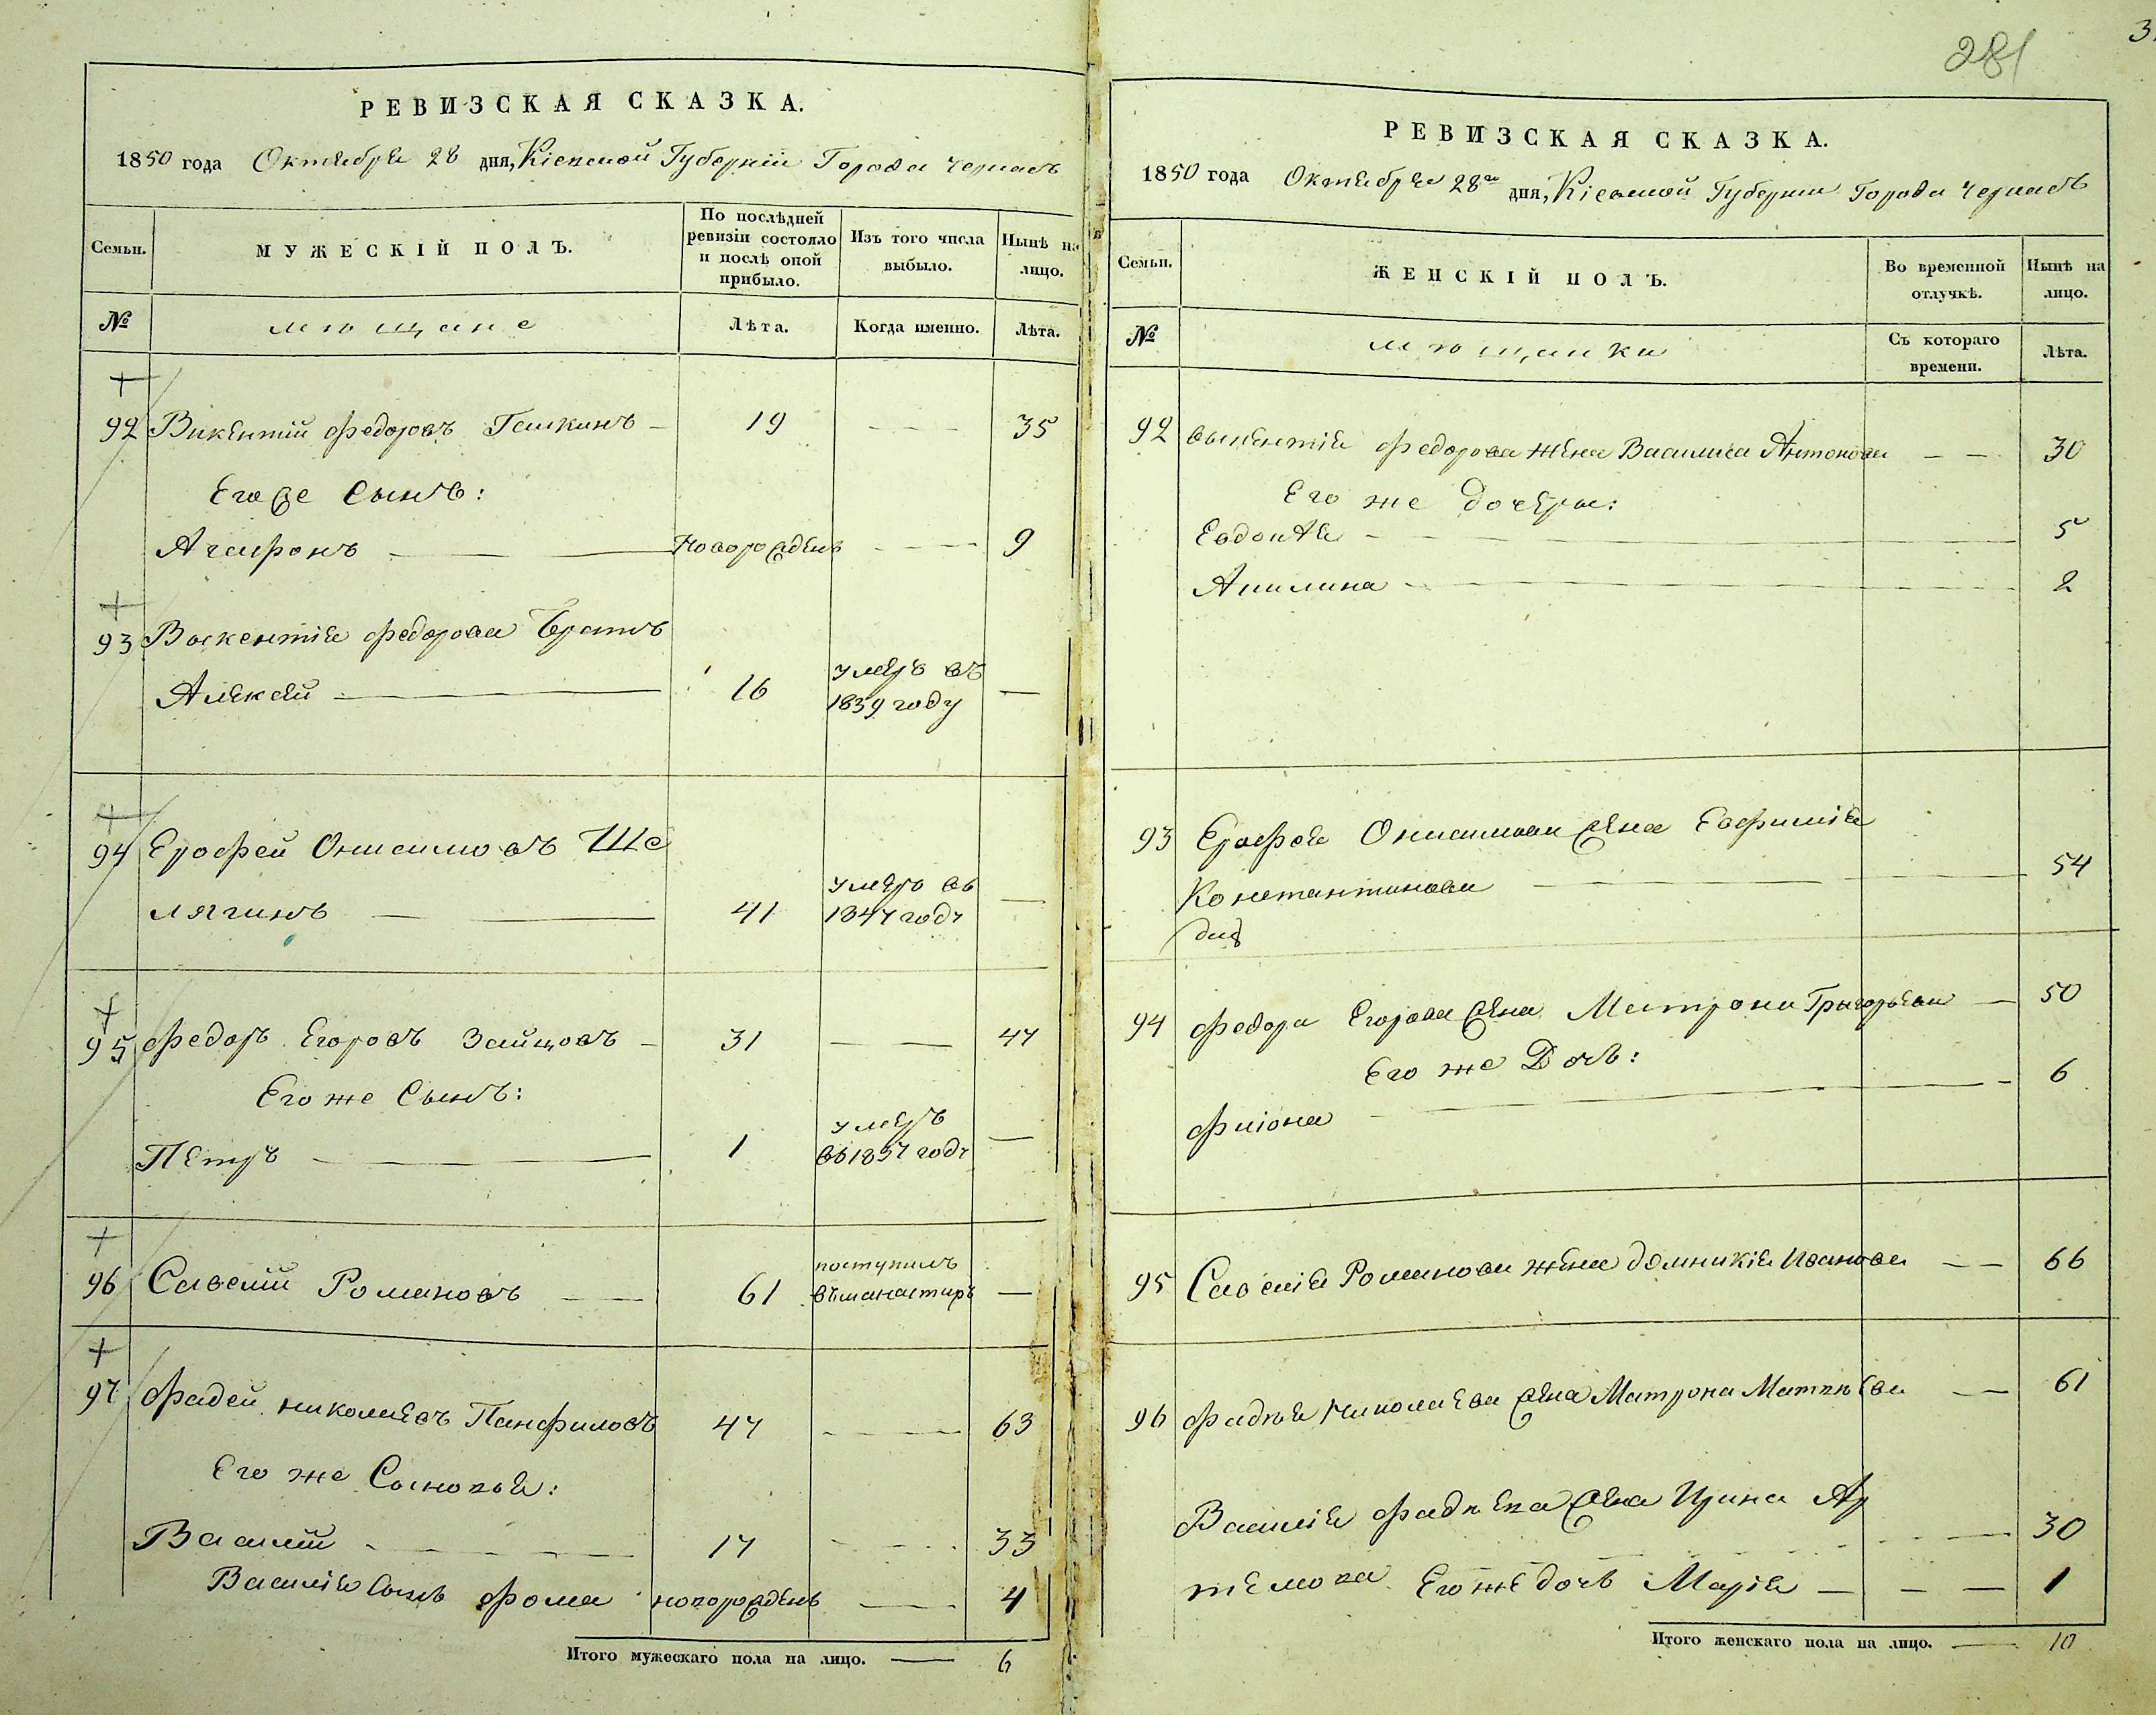 281
3
РЕВИЗСКАЯ СКАЗКА.
1850 года Октября 28 дня, Кіевской Губерніи Города Черкасъ
Семьи.
МУЖЕСКІЙ ПОЛЪ.
По послѣдней ревизіи состояло и послѣ оной прибыло.
Изъ того числа выбыло.
Нынѣ на лицо.
№
мѣщане
Лѣта.
Когда именно.
Лѣта.
92 Викентій Федоровъ Галкинъ 19 35
Его же Сынъ:
Агафонъ Новорожденъ 9
93 Викентія Федорова Братъ
Алексей 16 умеръ въ 1839 году
94 Ерофей Онисимовъ Ше
лягинъ 41 умеръ въ 1847 году
95 Федоръ Егоровъ Зайцовъ 31 47
Его же Сынъ:
Петръ 1 умеръ въ 1837 году
96 Савелій Романовъ 61 поступилъ въ манастиръ
97 Фадей Николаевъ Панфиловъ 47 63
Его же Сыновья:
Василій 17 33
Василія Сынъ Фома новорожденъ 4
Итого мужескаго пола на лицо. 6
РЕВИЗСКАЯ СКАЗКА.
1850 года Октября 28го дня, Кіевской Губерніи Города Черкасъ
Семьи.
ЖЕНСКІЙ ПОЛЪ.
Во временной отлучкѣ.
Нынѣ на лицо.
№
мѣщанки
Съ котораго времени.
Лѣта.
92 Викентія Федорова жена Василиса Антонова 30
Его же дочеры:
Евдокія 5
Акилина 2
93 Ерофея Онисимова жена Евфимія
Константинова 54
94 Федора Егорова жена Матрона Григорьева 50
Его же Дочь:
Фиіона 6
95 Савелія Романова жена Домникія Иванова 66
96 Фадѣя Николаева жена Матрона Матвѣева 61
Василія Фадѣева жена Ирина Ар
темова 30
Его же дочь Марія 1
Итого женскаго пола на лицо. 10